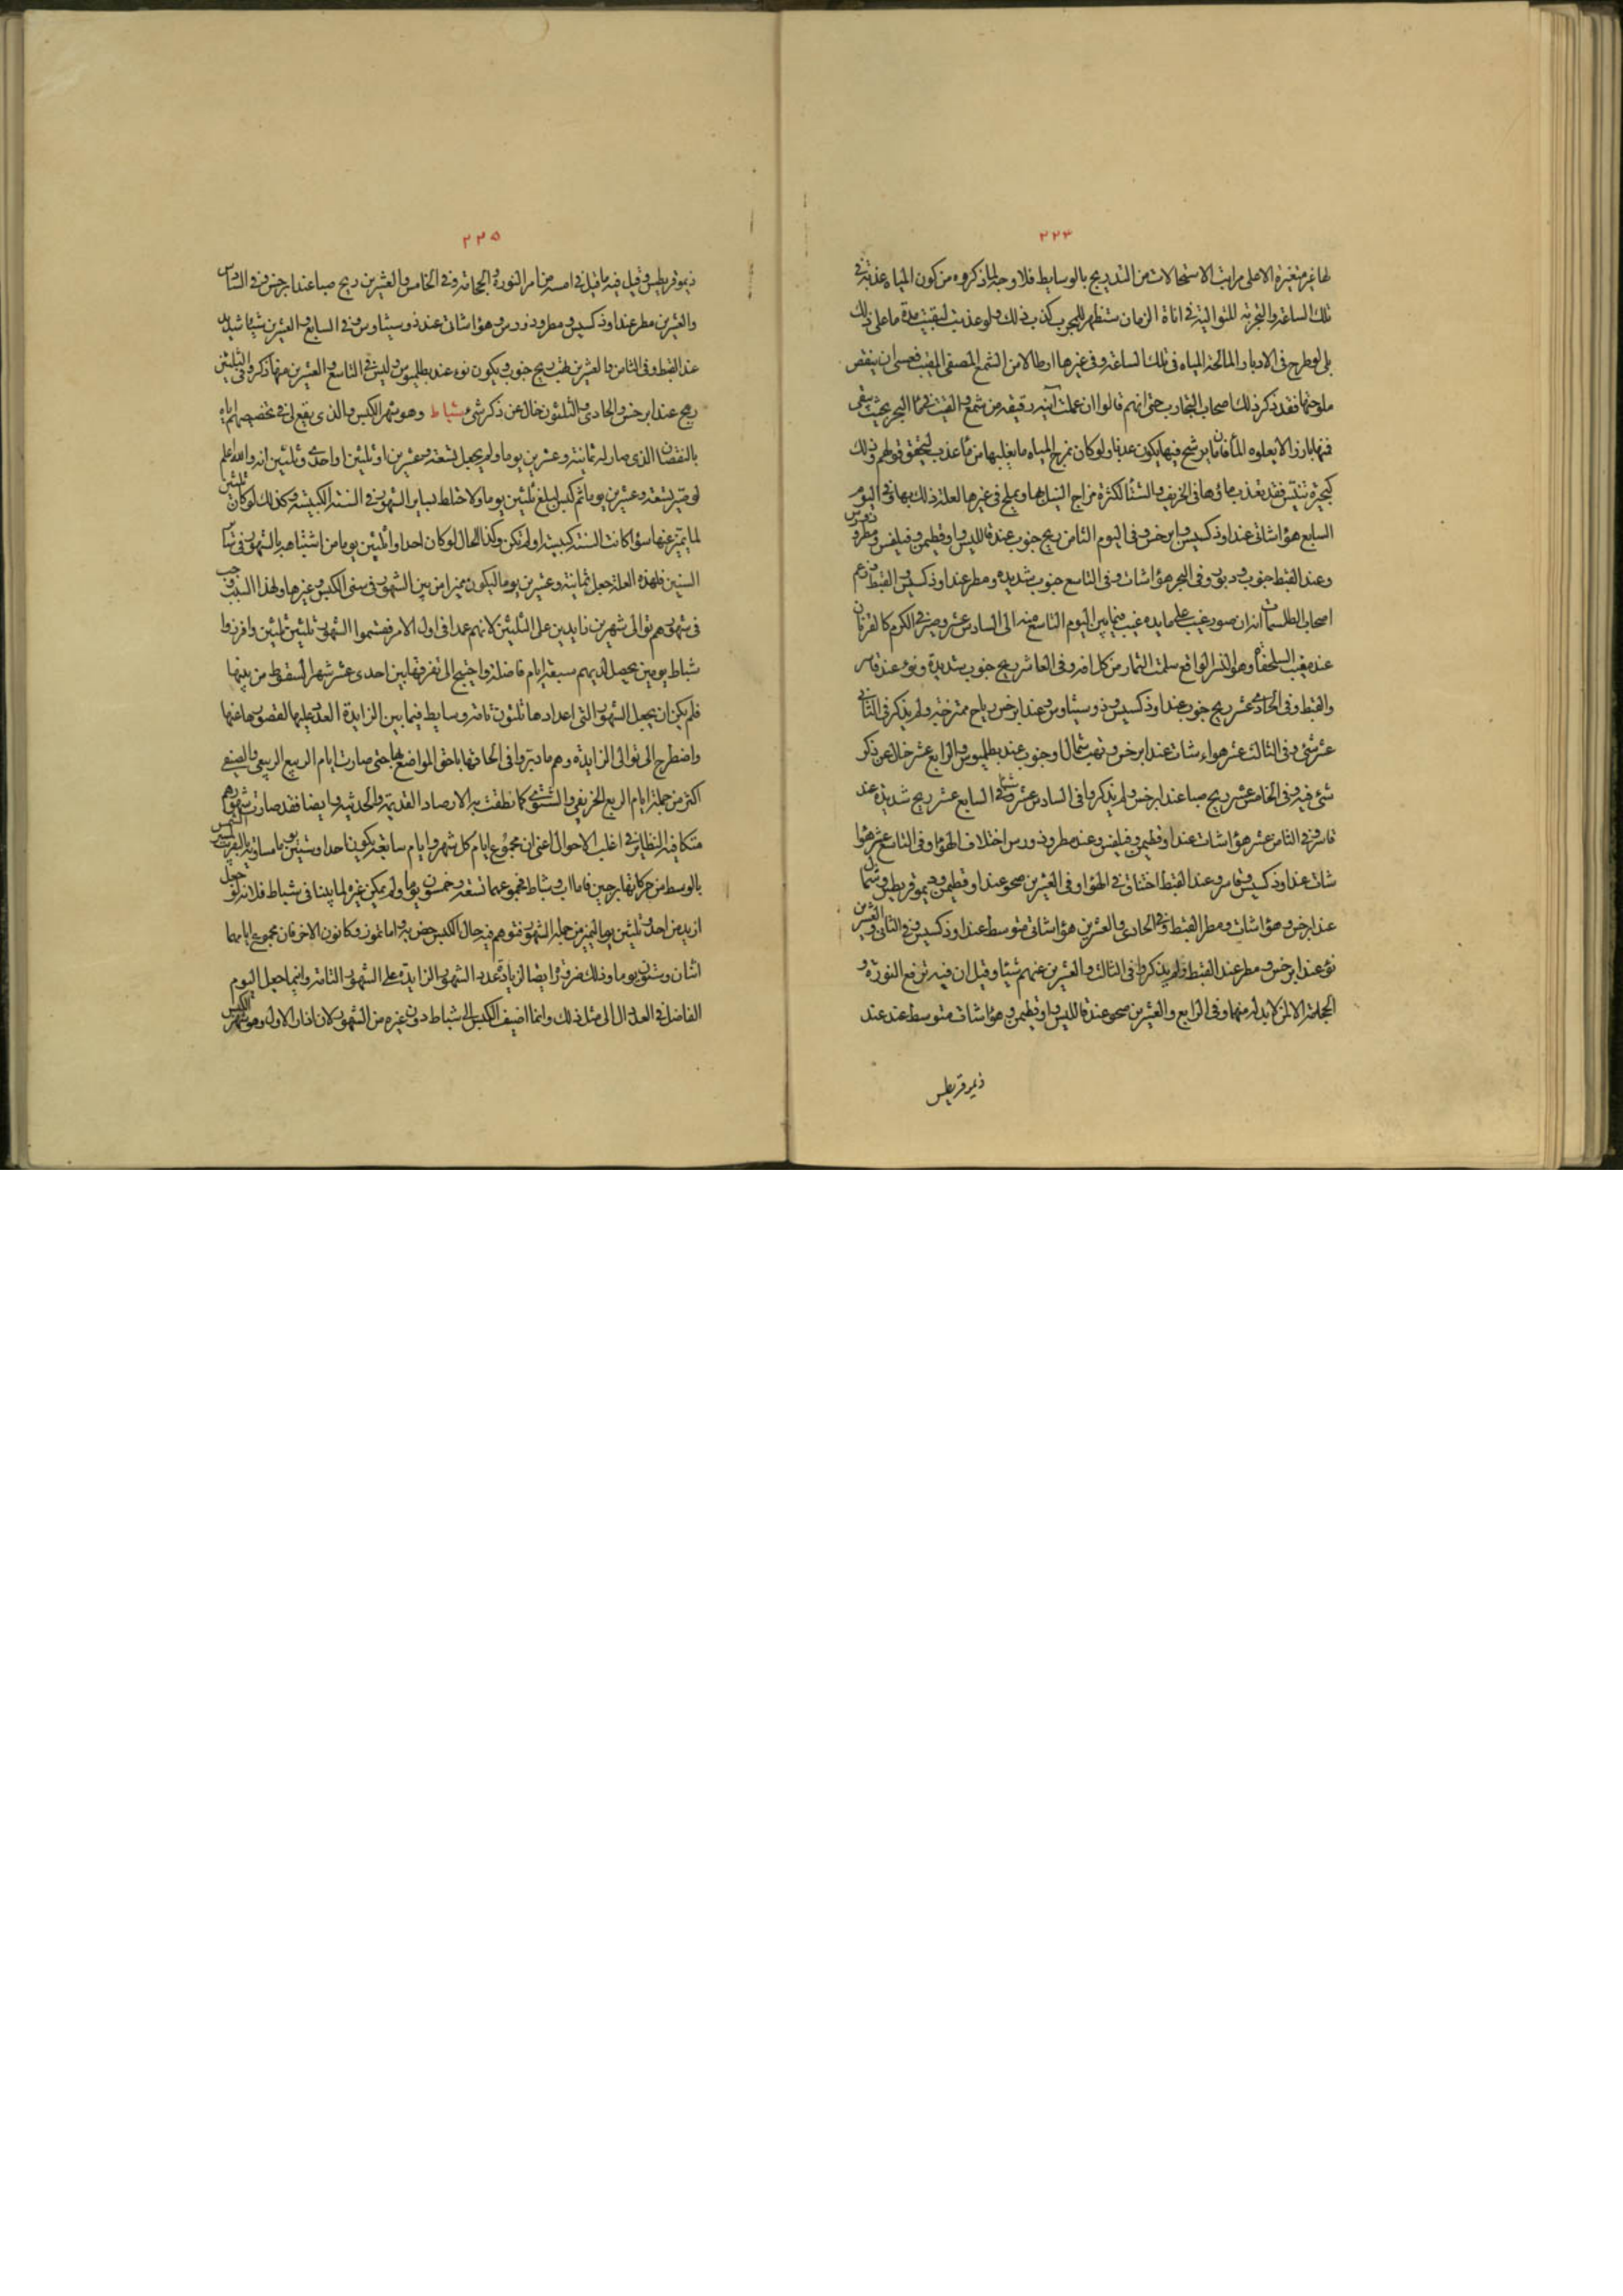 ٢٢٣
لها غير متغيرة الاصلى مراتب الاستحالات من التدريج بالوسايط فلا وجه لما ذكروه من كون المياه عذبة في
تلك الساعة والتجربة المتوالية في اناة الزمان ستظهر للمجرب كذب ذلك ولو عذبت لبقيت مدة ما على ذلك
بلى لو طرح في الابار المالحة المياه في تلك الساعة وفي غيرها ارطالا من الشمع المصفى المقيب فعسى ان ينقص
ملوحتها فقد ذكر ذلك اصحاب التجارب حتى انهم قالوا ان عملت آنية رقيقة من شمع والقيت في ماء البحر بحيث يبقى
فمها بارزا لا يعلوه الماء فان ما يرشح فيها يكون عذبا ولو كان يمزج المياه ما يغلبها من ماء عذب لتحقق قولهم وذلك
كبحيرة تنيس فقد تعذب ماؤها في الخريف والشتاء لكثرة مزاج النيل بها ويملح في غيرها لعلة ذلك بها وفي اليوم
السابع هواء شات عند اوذكسس وابرخس وفي اليوم الثامن ريح جنوب عند قاللبس واوقطيمن وفيلفس ومطرو
ذورس
وعند القبط جنوب ودبور وفي البحر هواء شات وفي التاسع جنوب شديدة ومطر عند اوذكسس والقبط وزعم
اصحاب الطلسمات انه ان صور عنب على مايدة عنب فيما بين اليوم التاسع منه الى السادس عشر وصير في الكرم كالقربان
عند مغيب السلحفاة وهو النسر الواقع سلمت الثمار من كل افة وفي العاشر ريح جنوب شديدة ونوء عند قاسر
والقبط وفي الحادى عشر ريح جنوب عند اوذكسس وذوسيثاوس وعند ابرخس رياح ممتزجة ولم يذكر في الثاني
عشر شئ وفي الثالث عشر هواء شات عند ابرخس وتهب شمال او جنوب عند بطلميوس والرابع عشر خال عن ذكر
شئ فيه وفي الخامس عشر ريح صبا عند ابرخس ولم يذكروا في السادس عشر شيئا وفي السابع عشر ريح شديدة عند
قاسر وفي الثامن عشر هواء شات عند اوقطيمن وفيلفس وعند مطروذورس اختلاف الهواء وفي التاسع عشر هواء
شات عند اوذكسس وقاسر وعند القبط اختناق في الهواء وفي العشرين صحو عند اوقطيمن وديموقريطس وشمال
عند ابرخس وهواء شات ومطر القبط وفي الحادى والعشرين هواء شات متوسط عند اوذكسس وفي الثاني والعشرين
نوء عند ابرخس ومطر عند القبط ولم يذكروا في الثالث والعشرين عنهم شيئا وقيل ان فيه ترفع النورة و
الحجامة الا لمن لا بد له منهما وفي الرابع والعشرين صحو عند قاللبس واوقطيمن وهواء شات متوسط عند عند
ذيموقريطس
٢٢٥
ذيموقريطس وقيل فيه ما قيل في امسه من امر النورة والحجامة وفي الخامس والعشرين ريح صبا عند ابرخس وفي السادس
والعشرين مطر عند اوذكسس ومطروذورس وهواء شات عند ذوسيثاوس وفي السابع والعشرين شتاء شديد
عند القبط وفي الثامن والعشرين تهب ريح جنوب ويكون نوء عند بطلميوس وليس في التاسع والعشرين منها ذكر وفي الثلثين
ريح عند ابرخس والحادى والثلثون خال عن ذكر شئ شباط وهو شهر الكبس والذي يقع لي في تخصيصهم اياه
بالنقصان الذي صار له ثمانية وعشرين يوما ولم يجعل تسعة وعشرين او ثلثين او احدى وثلثين انه والله اعلم
لو صير تسعة وعشرين يوما ثم كبس لبلغ ثلثين يوما ولاختلط بساير الشهور في السنة الكبيسة وكذلك لو كان ثلثين
لما تميز عنها سواء كانت السنة كبيسة او لم تكن وكذا الحال لو كان احدا وثلثين يوما من اشتباهه بالشهور في ساير
السنين فلهذه العلة جعل ثمانية وعشرين يوما ليكون مميزا من بين الشهور في سنى الكبس وغيرها ولهذا السبب وجب
في شهورهم توالى شهرين زايدين على الثلثين لانهم عمدا في اول الامر فقسموا الشهور ثلثين ثلثين وافرزوا
شباط يومين يحصل لديهم سبعة ايام فاضلة واحتيج الى تفرقها بين احدى عشر شهرا لسقوط من بينها
فلم يكن ان يجعل الشهور التي اعدادها ثلثون تامة وسايط فيما بين الزايدة العدد عليها لقصورها عنها
واضطرج الى توالى الزايدة وهم ما دبروا في الحاقها باحق المواضع بها حتى صارت ايام الربيع الربيعي والصيفي
اكثر من جملة ايام الربع الخريفي والشتوي كما نطقت به الارصاد القديمة والحديثة وايضا فقد صارت شهورهم
متكافية النظاير في اغلب الاحوال اعنى ان مجموع ايام كل شهر وايام سابعه يكون احدا وستين يوما مساوية بالقرب لمسير الشمس
بالوسط من حركاتها برجين فاما اب وشباط فمجموعهما تسعة وخمسون يوما ولم يمكن غيره لما بينا في شباط فلانه لو جعل
ازيد من احد وثلثين يوما لتميز من جملة الشهور فتوهم فيه حال الكبس ضرورة واما تموز وكانون الاخر فان مجموع ايامهما
اثنان وستون يوما وذلك ضرورة ايضا لزيادة عدد الشهور الزايدة على الشهور التامة وانما جعل اليوم
الفاضل في العدد الى مثل ذلك وانما اضيف الكبس الى شباط دون غيره من الشهور لان اذار الاول وهو شهر الكبس